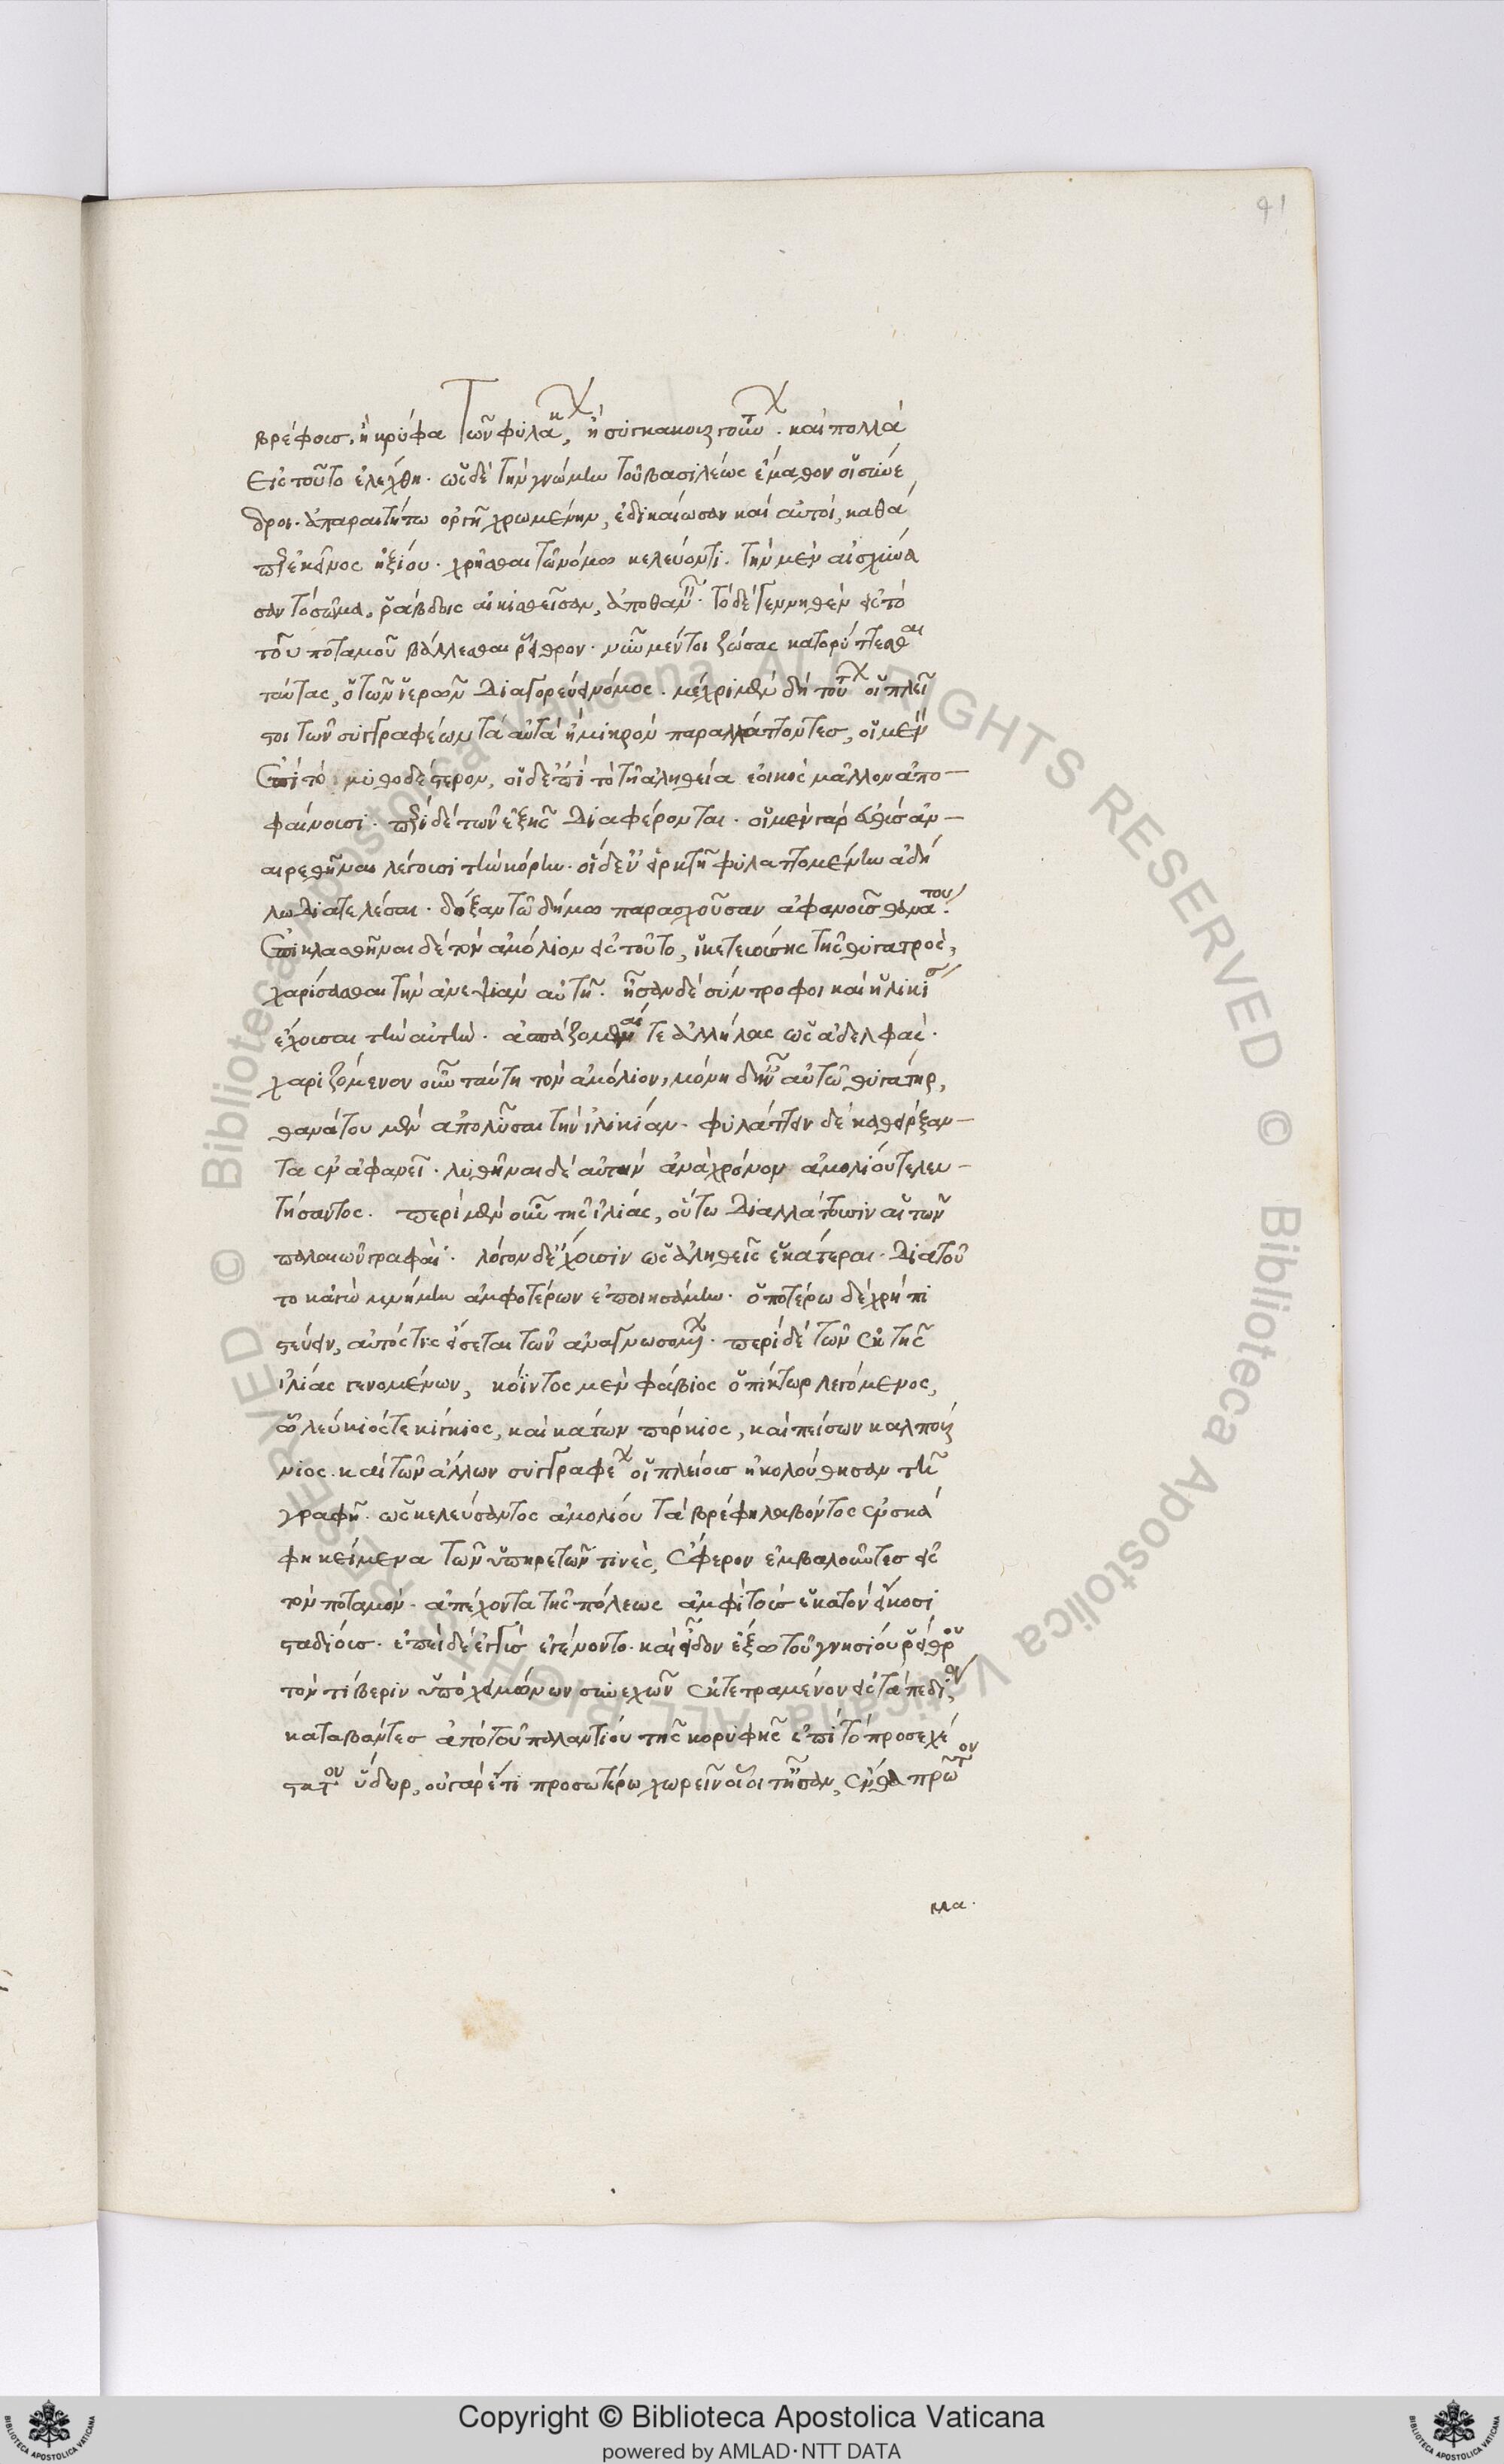 91
βρέφοισ, ἢ κρύφα τῶν φυλάκων, ἢ συγκακουργούντων. καὶ πολλὰ
εἰς τοῦτο ἐλέχθη. ὡς δὲ τὴν γνώμην τοῦ βασιλέως ἔμαθον οἱ σύνε
δροι. ἀπαραιτήτω ὀργῆ χρωμένην, ἐδικαίωσαν καὶ αὐτοὶ, καθά
περ ἐκεῖνος ἠξίου. χρῆσθαι τῶ νόμω κελεύοντι. τὴν μὲν αἰσχύνα
σαν τὸ σῶμα, ῥάβδοις αἰκισθεῖσαν, ἀποθανεῖν. τὸ δὲ γεννηθὲν εἰς τὸ
τοῦ ποταμοῦ βάλλεσθαι ῥεῖθρον. νῦν μέντοι ζώσας κατορύττεσθαι
ταύτας, ὁ τῶν ἱερῶν διαγορεύει νόμος. μέχρι μὲν δὴ τούτων οἱ πλεῖ
στοι τῶν συγγραφέων τὰ αὐτὰ ἢ μικρὸν παραλλάττοντεσ, οἱ μὲν
ἐπὶ τὸ μυθοδέστερον, οἱ δὲ ἐπὶ τὸ τῆ ἀληθεία ἐοικὸς μᾶλλον ἀπο-
φαίνουσι. περὶ δὲ τῶν ἑξῆς διαφέρονται. οἱ μὲν γὰρ εὐθὺς ἀν-
αιρεθῆναι λέγουσι τὴν κόρην. οἱ δ' ἐν εἱρκτῆ φυλαττομένην ἀδή
λω διατελέσαι. δόξαν τῶ δήμω παρασχοῦσαν ἀφανοῦς θανάτου.
ἐπικλασθῆναι δὲ τὸν ἀμόλιον εἰς τοῦτο, ἱκετευούσης τῆς θυγατρὸς,
χαρίσασθαι τὴν ἀνεψιὰν αὐτῆ. ἦσαν δὲ σύντροφοι καὶ ἡλικίαν
ἔχουσαι τὴν αὐτὴν. ἀσπαζόμεναί τε ἀλλήλας ὡς ἀδελφάς.
χαριζόμενον οὖν ταύτη τὸν ἀμόλιον, μόνη δ' ἦν αὐτῶ θυγάτηρ,
θανάτου μὲν ἀπολῦσαι τὴν ἰλίαν. φυλάττειν δὲ καθείρξαν-
τα ἐν ἀφανεῖ. λυθῆναι δὲ αὐτὴν ἀνὰ χρόνον ἀμολίου τελευ-
τήσαντος. περὶ μὲν οὖν τῆς ἰλίας, οὕτω διαλλάττουσιν αἱ τῶν
παλαιῶν γραφαὶ. λόγον δ' ἔχουσιν ὡς ἀληθεῖς ἑκάτεραι. διὰ τοῦ
το κἀγὼ μνήμην ἀμφοτέρων ἐποιησάμην. ὁποτέρω δὲ χρὴ πι
στεύειν, αὐτός τις εἴσεται τῶν ἀναγνωσομένων. περὶ δὲ τῶν ἐκ τῆς
ἰλίας γενομένων, κόϊντος μὲν φάβιος ὁ πίκτωρ λεγόμενος,
ὧ λεύκιός τε κίγκιος, καὶ κάτων πόρκιος, καὶ πείσων καλπούρ
νιος. καὶ τῶν ἄλλων συγγραφέων οἱ πλείους ἠκολούθησαν τῆ
γραφῆ. ὡς κελεύσαντος ἀμολίου τὰ βρέφη λαβόντος ἐν σκά
φη κείμενα τῶν ὑπηρετῶν τινὲς, ἔφερον ἐμβαλοῦντεσ εἰς
τὸν ποταμὸν. ἀπέχοντα τῆς πόλεως ἀμφὶ τοὺς ἑκατὸν εἴκοσι
σταδίους. ἐπεὶ δὲ ἐγγὺς ἐγένοντο. καὶ εἶδον ἔξω τοῦ γνησίου ῥείθρου
τὸν τίβεριν ὑπὸ χειμώνων συνεχῶν ἐκτετραμένον εἰς τὰ πεδία,
καταβάντεσ ἀπὸ τοῦ παλαντίου τῆς κορυφῆς ἐπὶ τὸ προσεχέ
στατον ὕδωρ, οὐ γὰρ ἔτι προσωτέρω χωρεῖν οἷοί τ' ἦσαν, ἔνθα πρῶτον
μα.